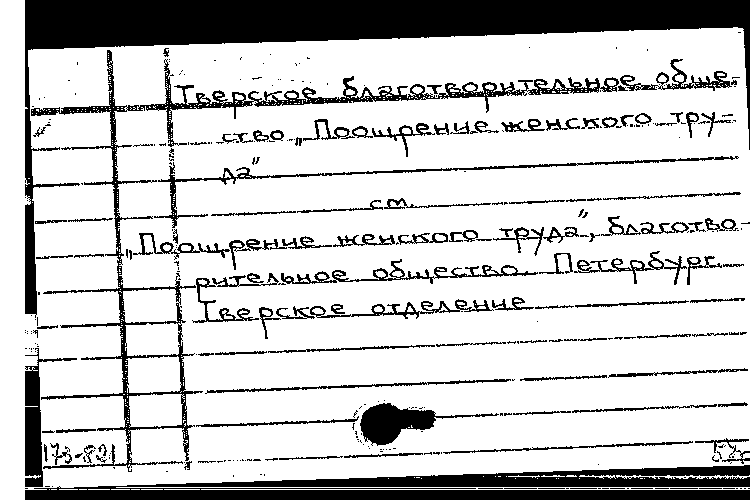 Тверское благотворительное обще-
ство „Поощрение женского тру-
да"
см.
„Поощрение женского труда", благотво-
рительное общество. Петербург.
Тверское отделение
173-821